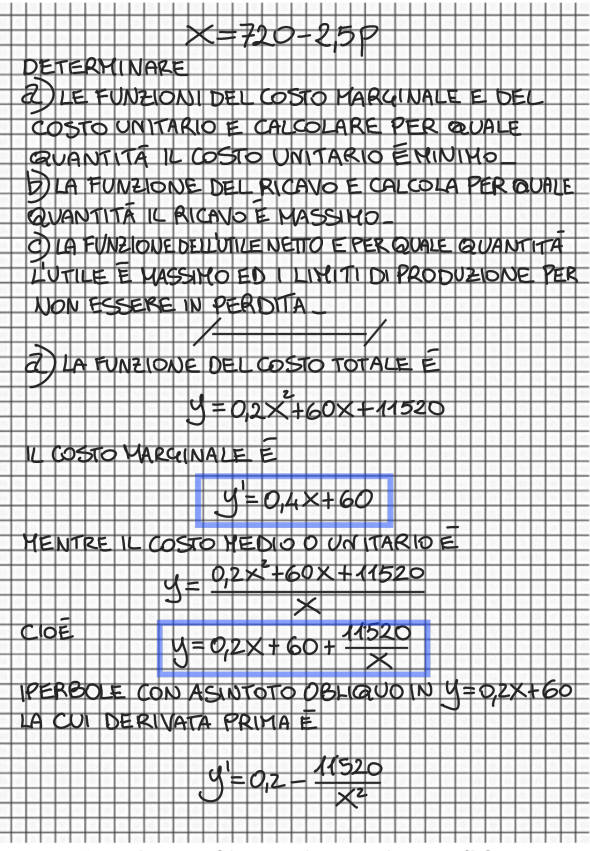 x=720-2,5p
DETERMINARE
a) LE FUNZIONI DEL COSTO MARGINALE E DEL
COSTO UNITARIO E CALCOLARE PER QUALE
QUANTITÀ IL COSTO UNITARIO È MINIMO_
b) LA FUNZIONE DEL RICAVO E CALCOLA PER QUALE
QUANTITÀ IL RICAVO È MASSIMO_
c) LA FUNZIONE DELL'UTILE NETTO E PER QUALE QUANTITÀ
L'UTILE È MASSIMO ED I LIMITI DI PRODUZIONE PER
NON ESSERE IN PERDITA_
a) LA FUNZIONE DEL COSTO TOTALE È
y=0,2x²+60x+11520
IL COSTO MARGINALE È
y'=0,4x+60
MENTRE IL COSTO MEDIO O UNITARIO È
y= 0,2x²+60x+11520 / x
CIOÈ y=0,2x+60+ 11520/x
IPERBOLE CON ASINTOTO OBLIQUO IN y=0,2x+60
LA CUI DERIVATA PRIMA È
y'=0,2- 11520/x²